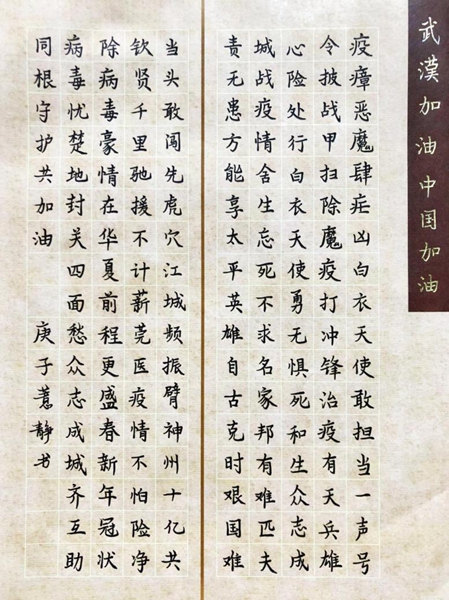 武漢加油中国加油
疫瘴恶魔肆疟凶白衣天使敢担当一声号
令披战甲扫除魔疫打冲锋治疫有天兵雄
心险处行白衣天使勇无惧死和生众志成
城战疫情舍生忘死不求名家邦有难匹夫
责无患方能享太平英雄自古克时艰国难
当头敢闯先虎穴江城频振臂神州十亿共
钦贤千里驰援不计薪莞医疫情不怕险净
除病毒豪情在华夏前程更盛春新年冠状
病毒忧楚地封关四面愁众志成城齐互助
同根守护共加油 庚子薏静书